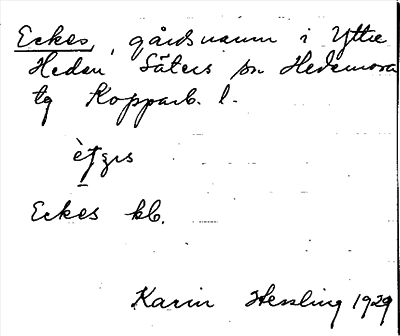 Eckes, gårdsnamn i Yttre
Heden Säters sn Hedemora
tg Kopparb. l.
Eckes kb.
Karin Hessling 1929